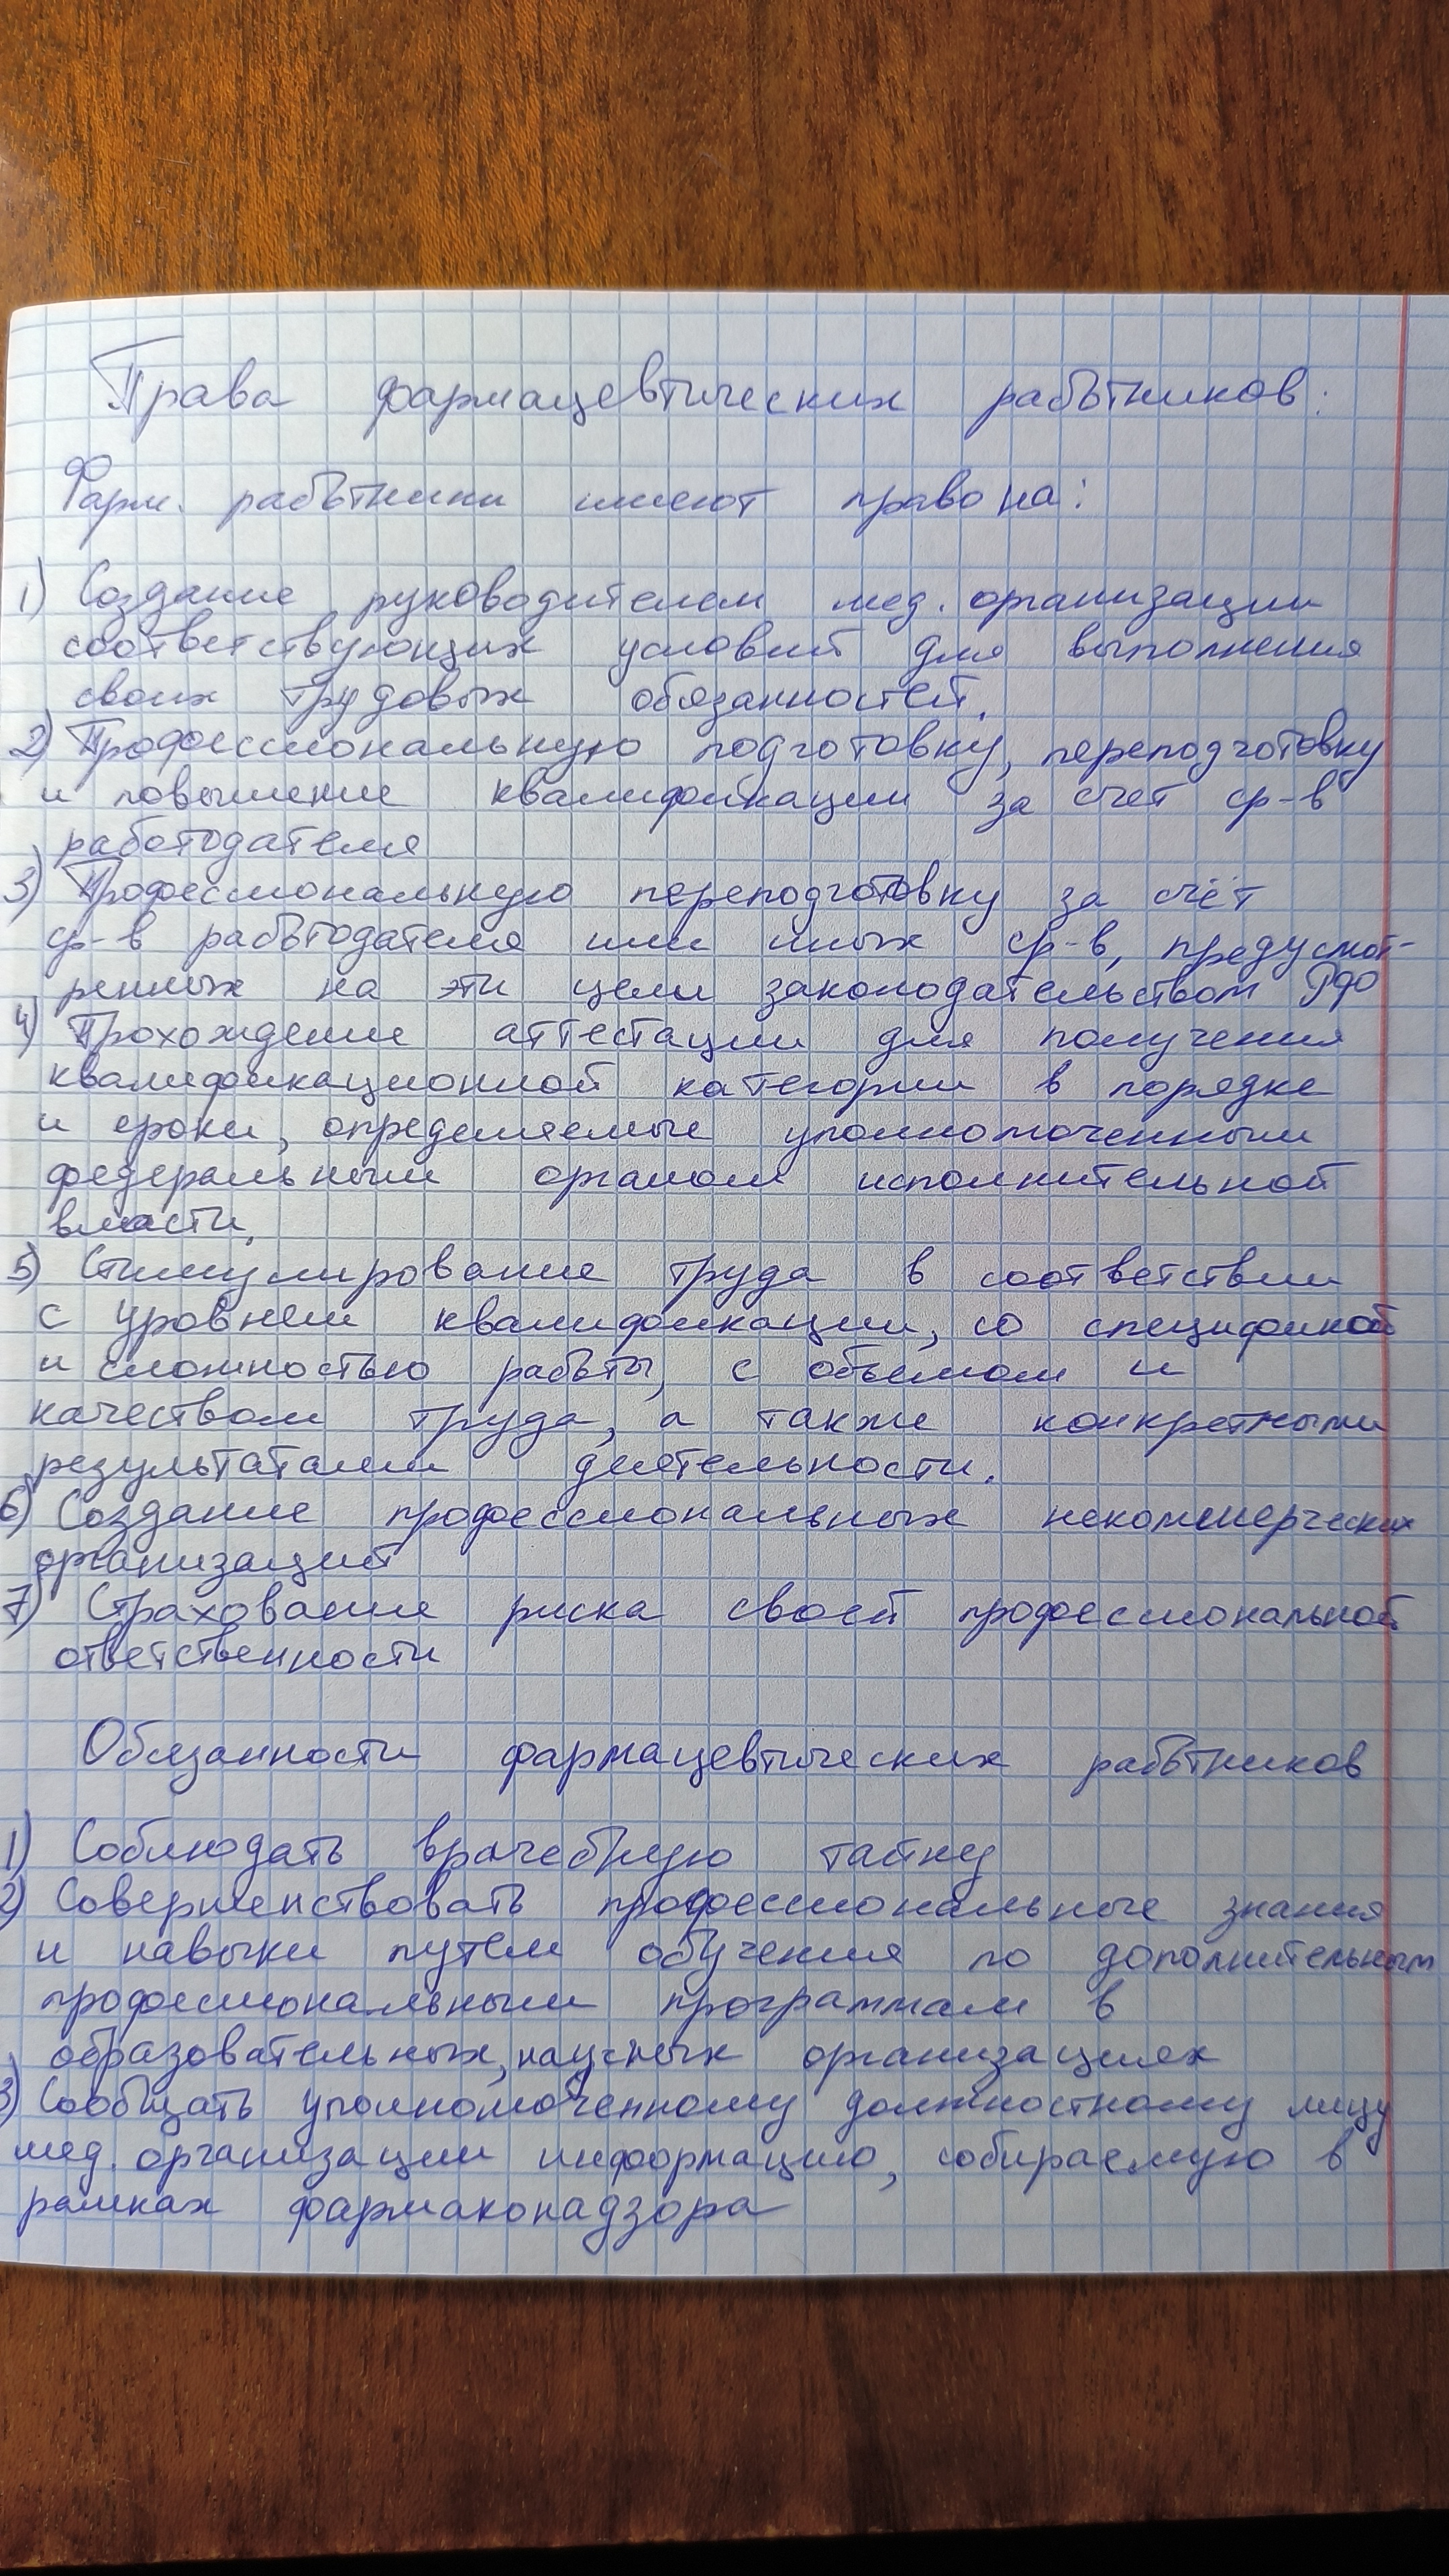 Права фармацевтических работников:
Фарм. работники имеют право на:
1) Создание руководителем мед. организации
соответствующих условий для выполнения
своих трудовых обязанностей.
2) Профессиональную подготовку, переподготовку
и повышение квалификации за счет ср-в
работодателя
3) Профессиональную переподготовку за счёт
ср-в работодателя или иных ср-в, предусмот-
ренных на эти цели законодательством РФ
4) Прохождение аттестации для получения
квалификационной категории в порядке
и сроки, определяемые уполномоченным
федеральным органом исполнительной
власти.
5) Стимулирование труда в соответствии
с уровнем квалификации, со спецификой
и сложностью работы, с объемом и
качеством труда, а также конкретными
результатами деятельности.
6) Создание профессиональных некоммерческих
организаций
7) Страхование риска своей профессиональной
ответственности
Обязанности фармацевтических работников
1) Соблюдать врачебную тайну
2) Совершенствовать профессиональные знания
и навыки путем обучения по дополнительным
профессиональным программам в
образовательных, научных организациях
3) Сообщать уполномоченному должностному лицу
мед. организации информацию, собираемую в
рамках фармаконадзора